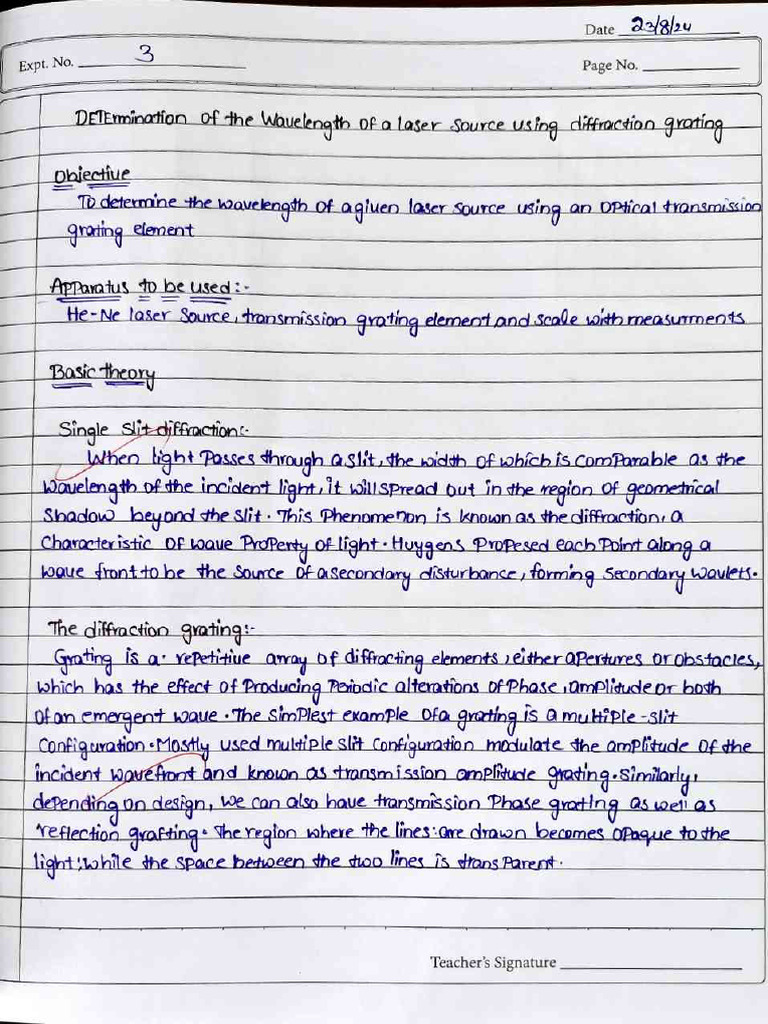 Date 23/8/24
Expt. No. 3
Page No.
DETErmination of the Wavelength of a laser source using diffraction grating
Objective
To determine the wavelength of a given laser source using an optical transmission
grating element
Apparatus to be used:-
He-Ne laser source, transmission grating element and scale with measurments
Basic theory
Single slit diffraction:-
When light passes through a slit, the width of which is comparable as the
wavelength of the incident light, it will spread out in the region of geometrical
shadow beyond the slit. This phenomenon is known as the diffraction, a
characteristic of wave property of light. Huygens propesed each point along a
wave front to be the source of a secondary disturbance, forming secondary wavlets.
The diffraction grating:-
Grating is a repetitive array of diffracting elements, either apertures or obstacles,
which has the effect of producing periodic alterations of phase, amplitude or both
of an emergent wave. The simplest example of a grating is a multiple-slit
configuration. Mostly used multiple slit configuration modulate the amplitude of the
incident wavefront and known as transmission amplitude grating. Similarly,
depending on design, we can also have transmission phase grating as well as
reflection grafting. The region where the lines are drawn becomes opaque to the
light, while the space between the two lines is transparent.
Teacher's Signature